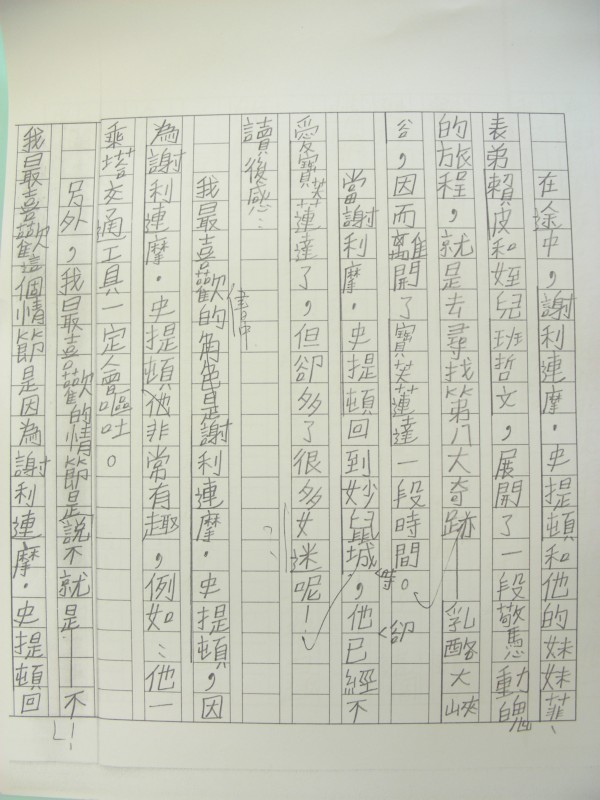 在途中，謝利連摩．史提頓和他的妹妹菲、
表弟賴皮和姪兒班哲文，展開了一段驚動魄
的旅程，就是去尋找第八大奇跡——乳酪大峽
谷，因而離開了寶芙蓮達一段時間。
當謝利摩．史提頓回到妙鼠城，他已經不
愛寶芙蓮達了，但卻多了很多女迷呢！
等
卻
讀後感：
我最喜歡的角色是謝利連摩．史提頓，因
書中
為謝利連摩．史提頓他非常有趣，例如：他一
乘塔交通工具一定會嘔吐。
另外，我最喜歡的情節是說不就是——不
！
我最喜歡這個情節是因為謝利連摩．史提頓回